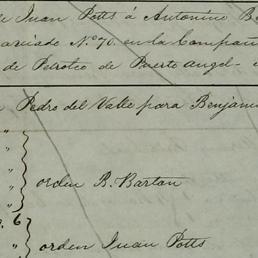 de Juan Potts á Antonino B
No. 70. en la Compañ
de Petroleo de Puerto Angel
Pedro del Valle para Benjami
orden R. Bartan
6
orden Juan Potts